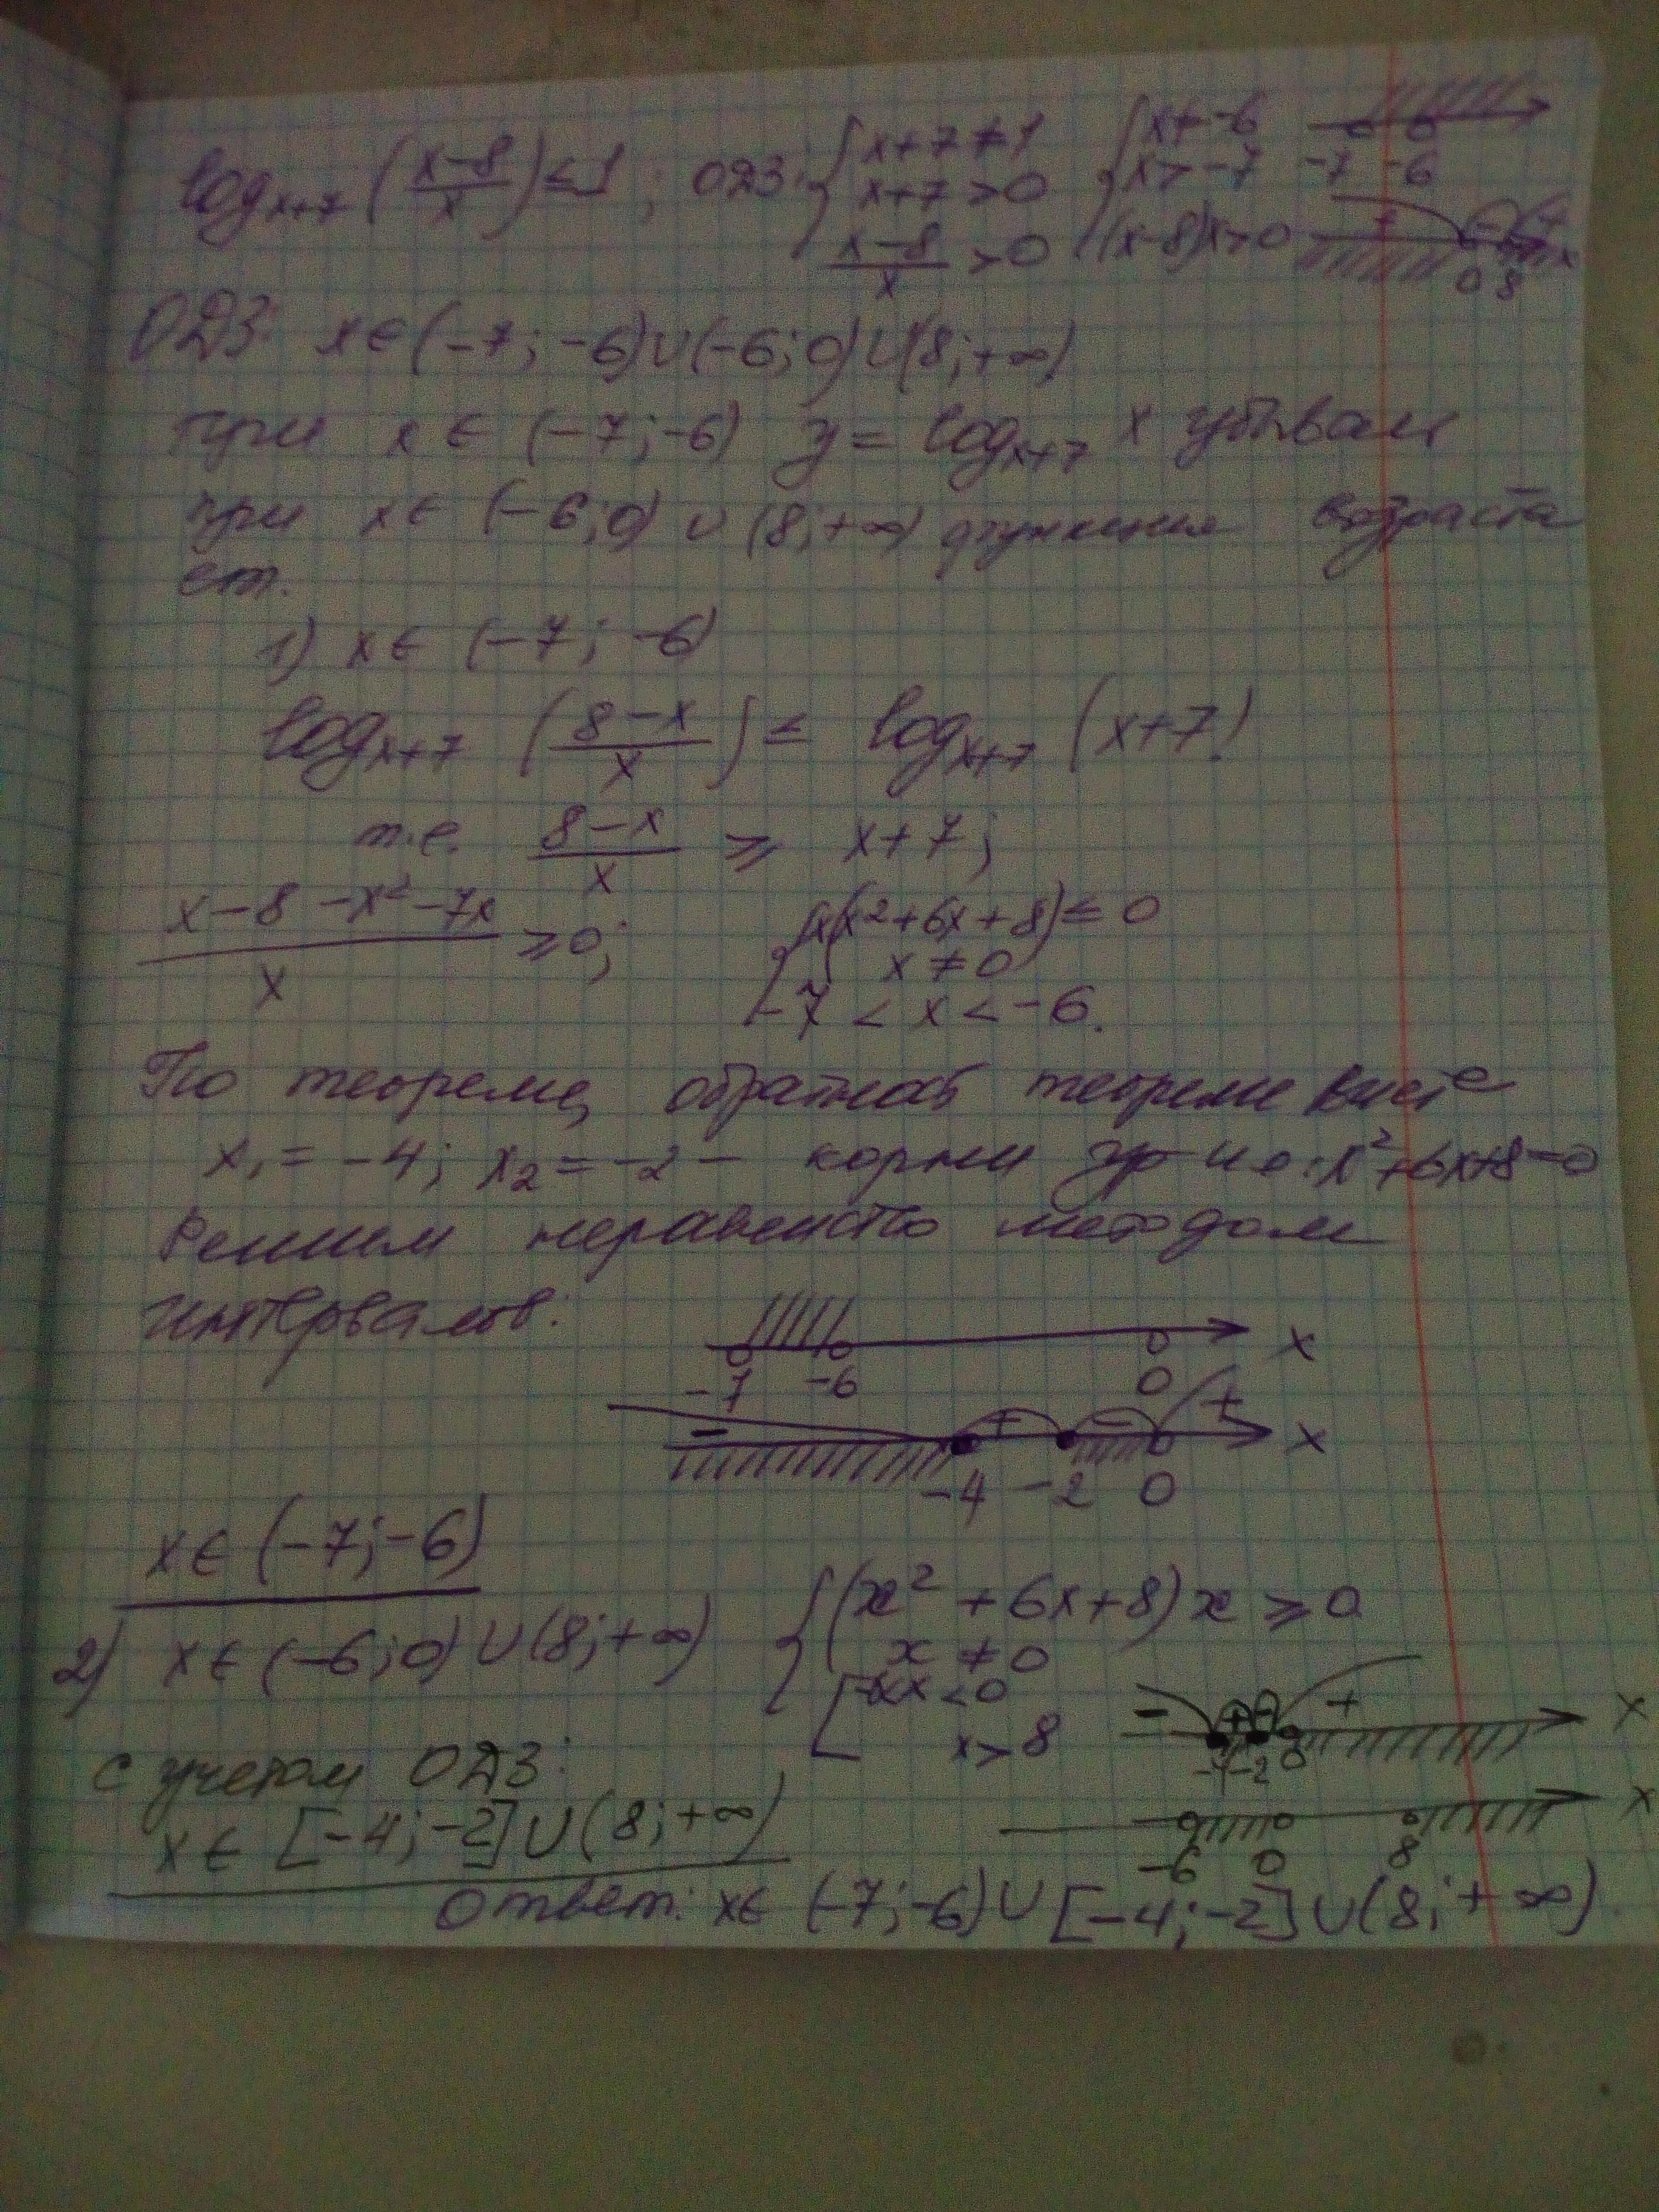 log_{x+7} ((x-8)/x) ≤ 1; ОДЗ: { x+7≠1 { x≠-6
x+7>0 x>-7 -7 -6
(x-8)/x >0 (x-8)x>0 + - + 0 8 x
ОДЗ: x∈(-7; -6)∪(-6; 0)∪(8; +∞)
при x∈ (-7; -6) y = log_{x+7} x убывает
при x∈ (-6; 0) ∪ (8; +∞) функция возраста
ет.
1) x∈ (-7; -6)
log_{x+7} ((8-x)/x) ≤ log_{x+7} (x+7)
т.е. (8-x)/x ≥ x+7;
(x-8-x²-7x)/x ≥0; { x(x²+6x+8)≤0
x≠0
-7 < x < -6.
По теореме, обратной теореме Виета
x₁ = -4; x₂ = -2 - корни ур-ия: x²+6x+8=0
Решим неравенство методом
интервалов:
-7 -6 0 x
- + - + x
-4 -2 0
x∈ (-7; -6)
2) x∈ (-6; 0) ∪ (8; +∞) { (x²+6x+8)x ≥ 0
x≠0
[ -6<x<0
x>8
- + - + x
-4 -2 0
с учетом ОДЗ:
x∈ [-4; -2]∪(8; +∞)
-6 0 8 x
Ответ: x∈ (-7; -6)∪[-4; -2]∪(8; +∞).